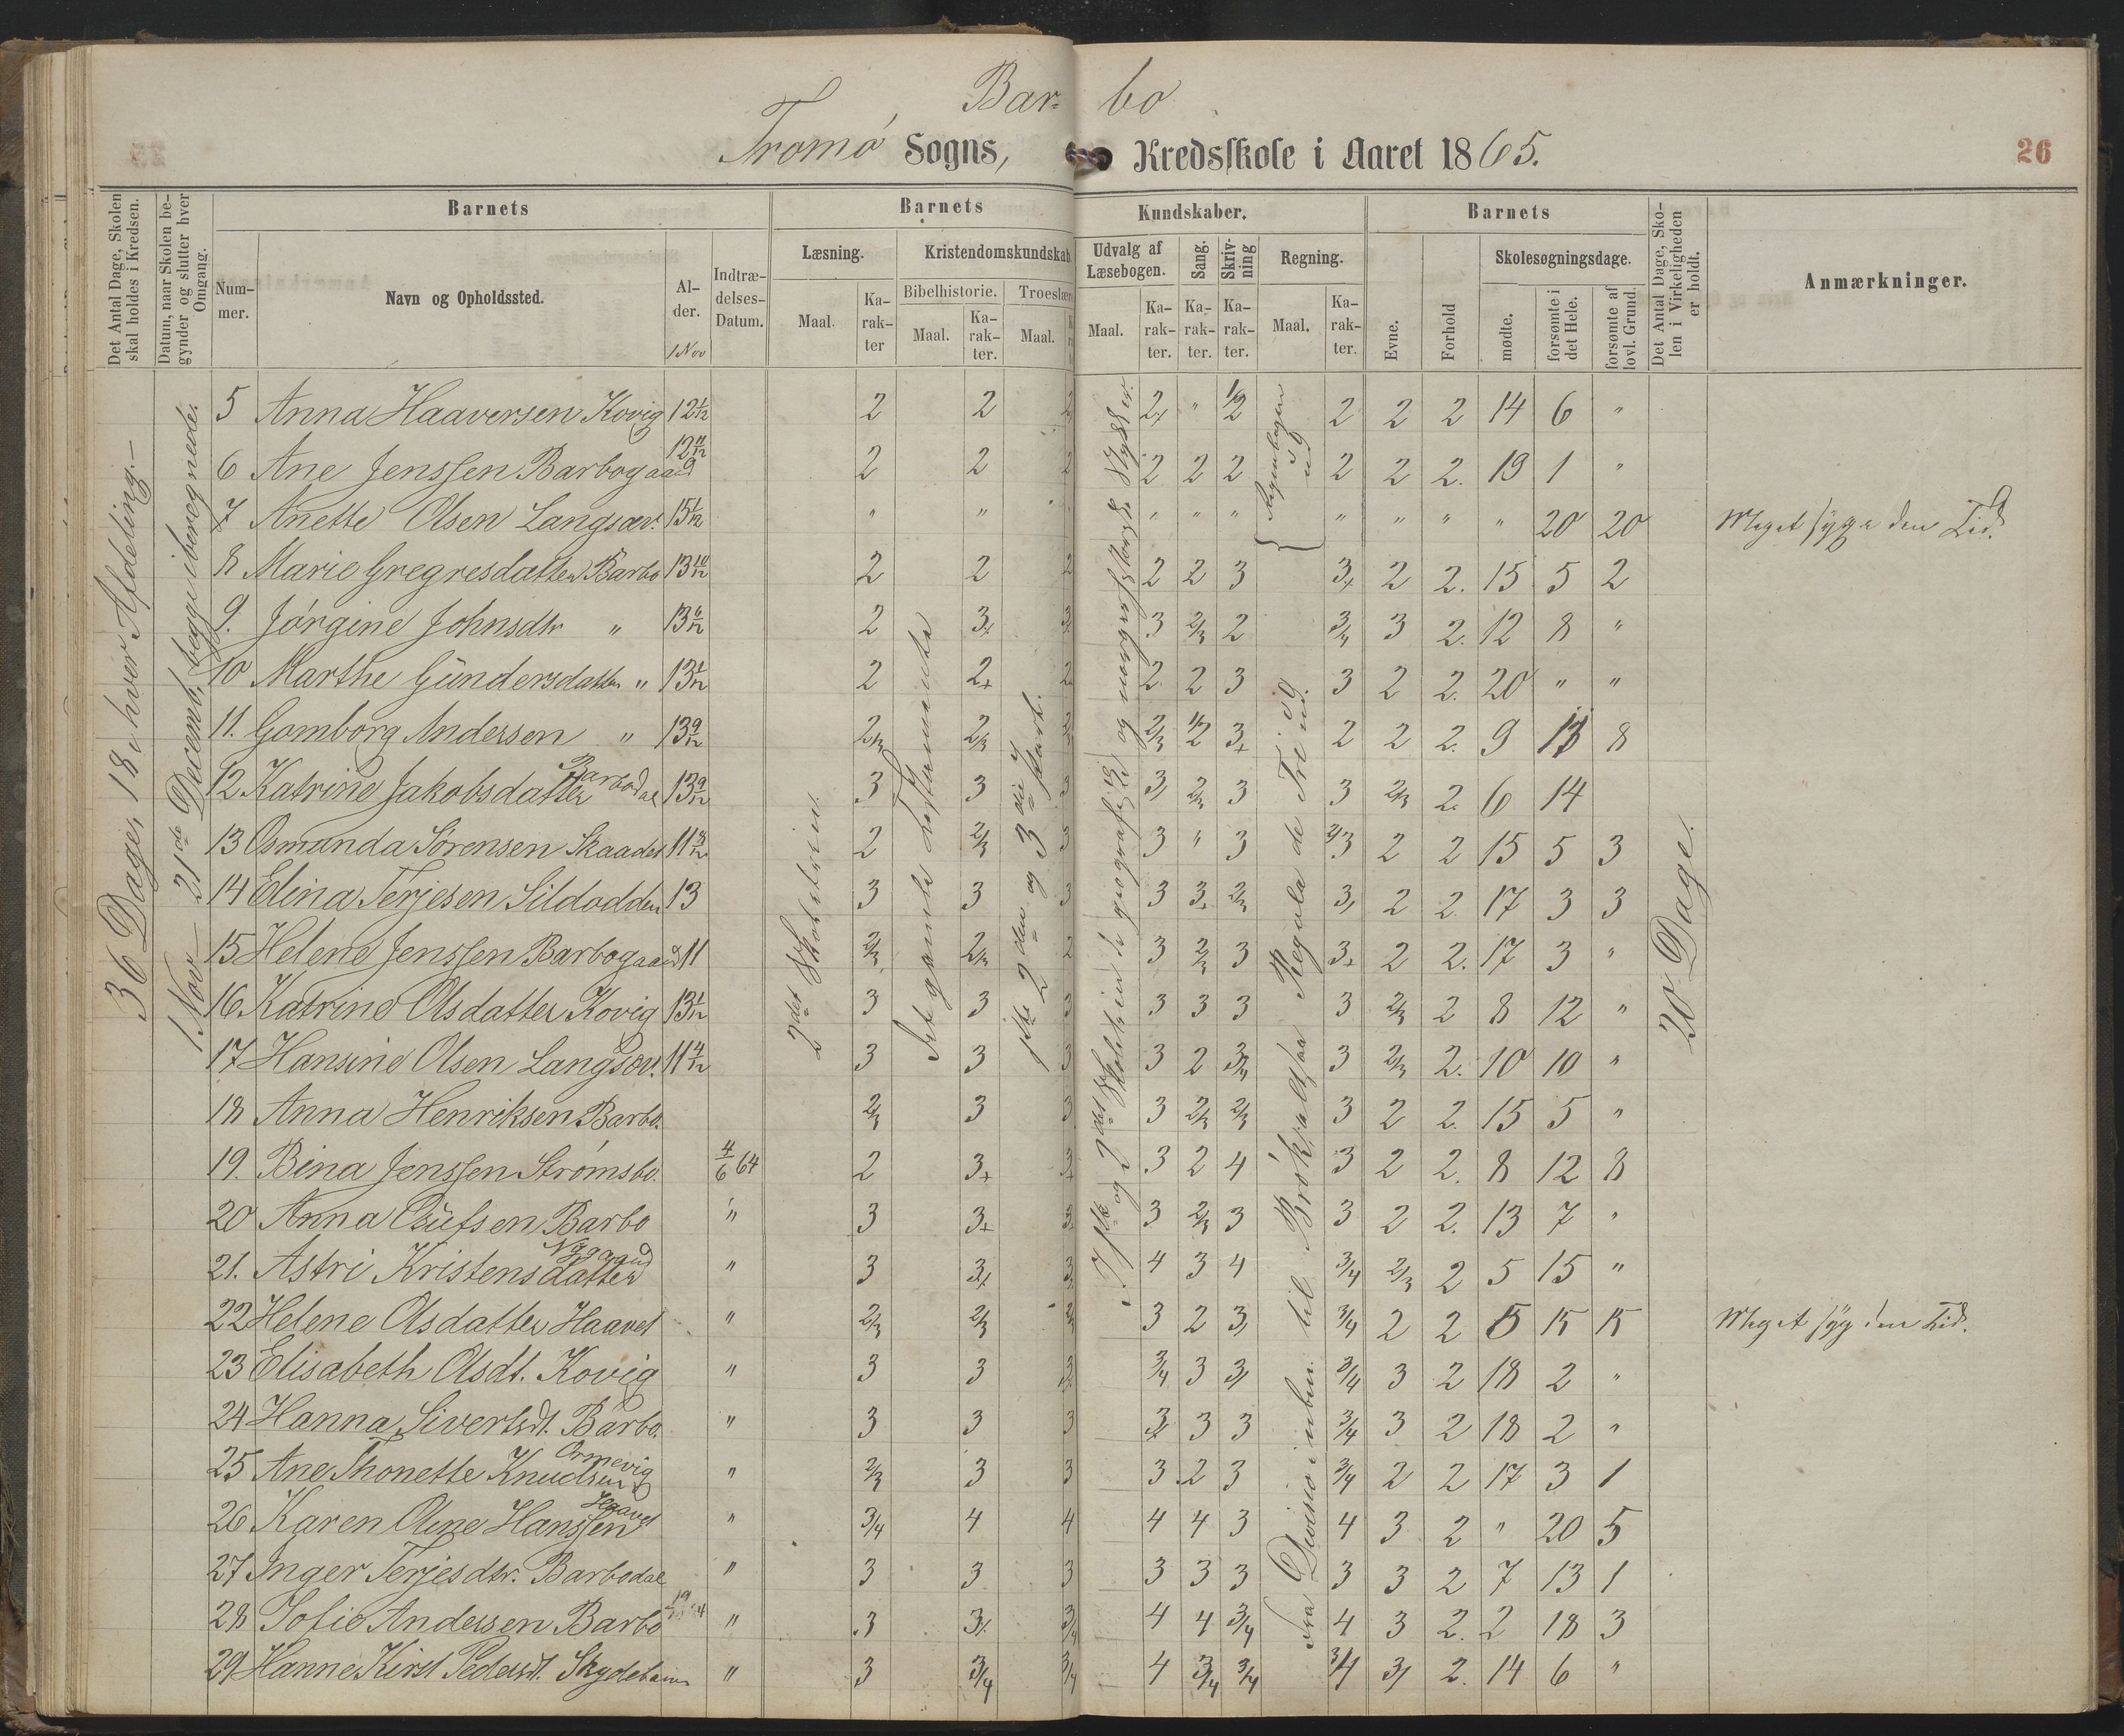 Bar- bo
Tromø Sogns, Kredsskole i Aaret 1865.
26
Det Antal Dage, Skolen skal holdes i Kredsen.
Datum, naar Skolen begynder og slutter hver Omgang.
Barnets
Barnets Kundskaber.
Barnets
Det Antal Dage, Skolen i Virkeligheden er holdt.
Anmærkninger.
Nummer.
Navn og Opholdssted.
Alder.
1 Nov
Indtrædelses-Datum.
Læsning.
Kristendomskundskab.
Udvalg af Læsebogen.
Sang.
Skrivning
Regning.
Skolesøgningsdage.
Bibelhistorie.
Troeslær
Maal.
Karakter
Maal.
Karakter.
Maal.
Maal.
Karakter.
Karakter.
Karakter.
Maal.
Karakter.
Evne.
Forhold
mødte.
forsømte i det Hele.
forsømte af lovl. Grund.
36 Dage, 18 i hver Afdeling.
1 Nov – 21de Decemb, begge iberegnede.
2det Skoletrin.
Det gamle Testamente
1ste 2den og 3die Part.
Regula de Tri
20 Dage.
5 Anna Haaversen Kovig 12 1/12 2 2 2 2+ " 1/2 2 2 2 14 6 "
6 Ane Jenssen Barbogaard 12 11/12 2 2 2 2 2 2 2 2 2. 19 1 "
7 Anette Olsen Langsæv. 15 1/12 " " " " " " " " " 20 20 Meget syg i den Tid.
8 Marie Gregresdatter Barbo 13 10/12 2 2 2 2 2 3 3+ 2 2. 15 5 2
9. Jørgine Johnsdtr " 13 6/12 2 3+ 3+ 3 2/3 2 3/4 3 2. 12 8 "
10 Marthe Gündersdatter " 13 1/12 2 2+ 2 2 2 3 3 2 2. 20 " "
11. Gomborg Andersen " 13 9/12 2/3 2/3 2/3 2/3 1/2 3+ 2 2 2. 9 11 8
12 Katrine Jakobsdatter Barbodal 13 9/12 3 3 3 3/ 2/3 3 3 2/3 2. 6 14
13 Osmunda Sørensen Skaadet 11 8/12 2 2/3 3 3 " 3 2/3 2 2 15 5 3
14 Elina Terjesen Sildodden 13 3 3 3 3 3+ 2/3 3/ 2 2 17 3 3
15 Helene Jenssen Barbogaard 11 2/3 2/3 2 3 2/3 3 3+ 2 2. 17 3 "
16. Katrine Olsdatter Kovig 13 1/12 3 3 3 3 3 3 3 2/3 2 8 12 "
17 Hansine Olsen Langsæv. 11 4/12 3 3 3 3 2 3/4 3 2/3 2. 10 10 "
18 Anna Henriksen Barbo. 2/3 3 3 3 2/3 2/3 3 2 2. 15 5 "
19. Bina Jenssen Strømsbo. 4/6 64 2 3+ 3+ 3 2 4 3 2 2. 8 12 8
20 Anna Oülfsen Barbo " 3 3+ 3+ 3 2/3 3 3 2 2. 13 7 "
21. Astri Kristensdatter Nygaard " 3 3+ 3 4 3 4 3/4 2/3 2 5 15 "
22 Helene Olsdatter Haavet " 2/3 2/3 2/3 3 2 3/ 3/4 2 2 5 15 15 Meget syg i den Tid.
23 Elisabeth Olsdt. Kovig " 3 3 3 3/4 3 3/ 3/4 3 2 18 2 "
24 Hanna Sivertsdt. Barbo. " 3 3 3 3+ 3 3 3/4 3 2 18 2 "
25 Ane Thonette Knudsen Ormevig " 2/3 3 3 3 2 3 3/4 2 2 17 3 1
26 Karen Oline Hanssen " 3/4 4 4 4 4 3 4 3 2 " 20 5
27 Inger Terjesdtr. Barbodal " 3 3 3 3 3 3 3 3 2 7 13 1
28 Sofie Andersen Barbo " 3 3/ 3/4 4 4 3/4 4 3 2. 2 18 3
29 Hanne Kirst Pedersdt. Skydebanen " 3 3/4 3/4 4 3/4 3/4 3/4 3/ 2. 14 6 "